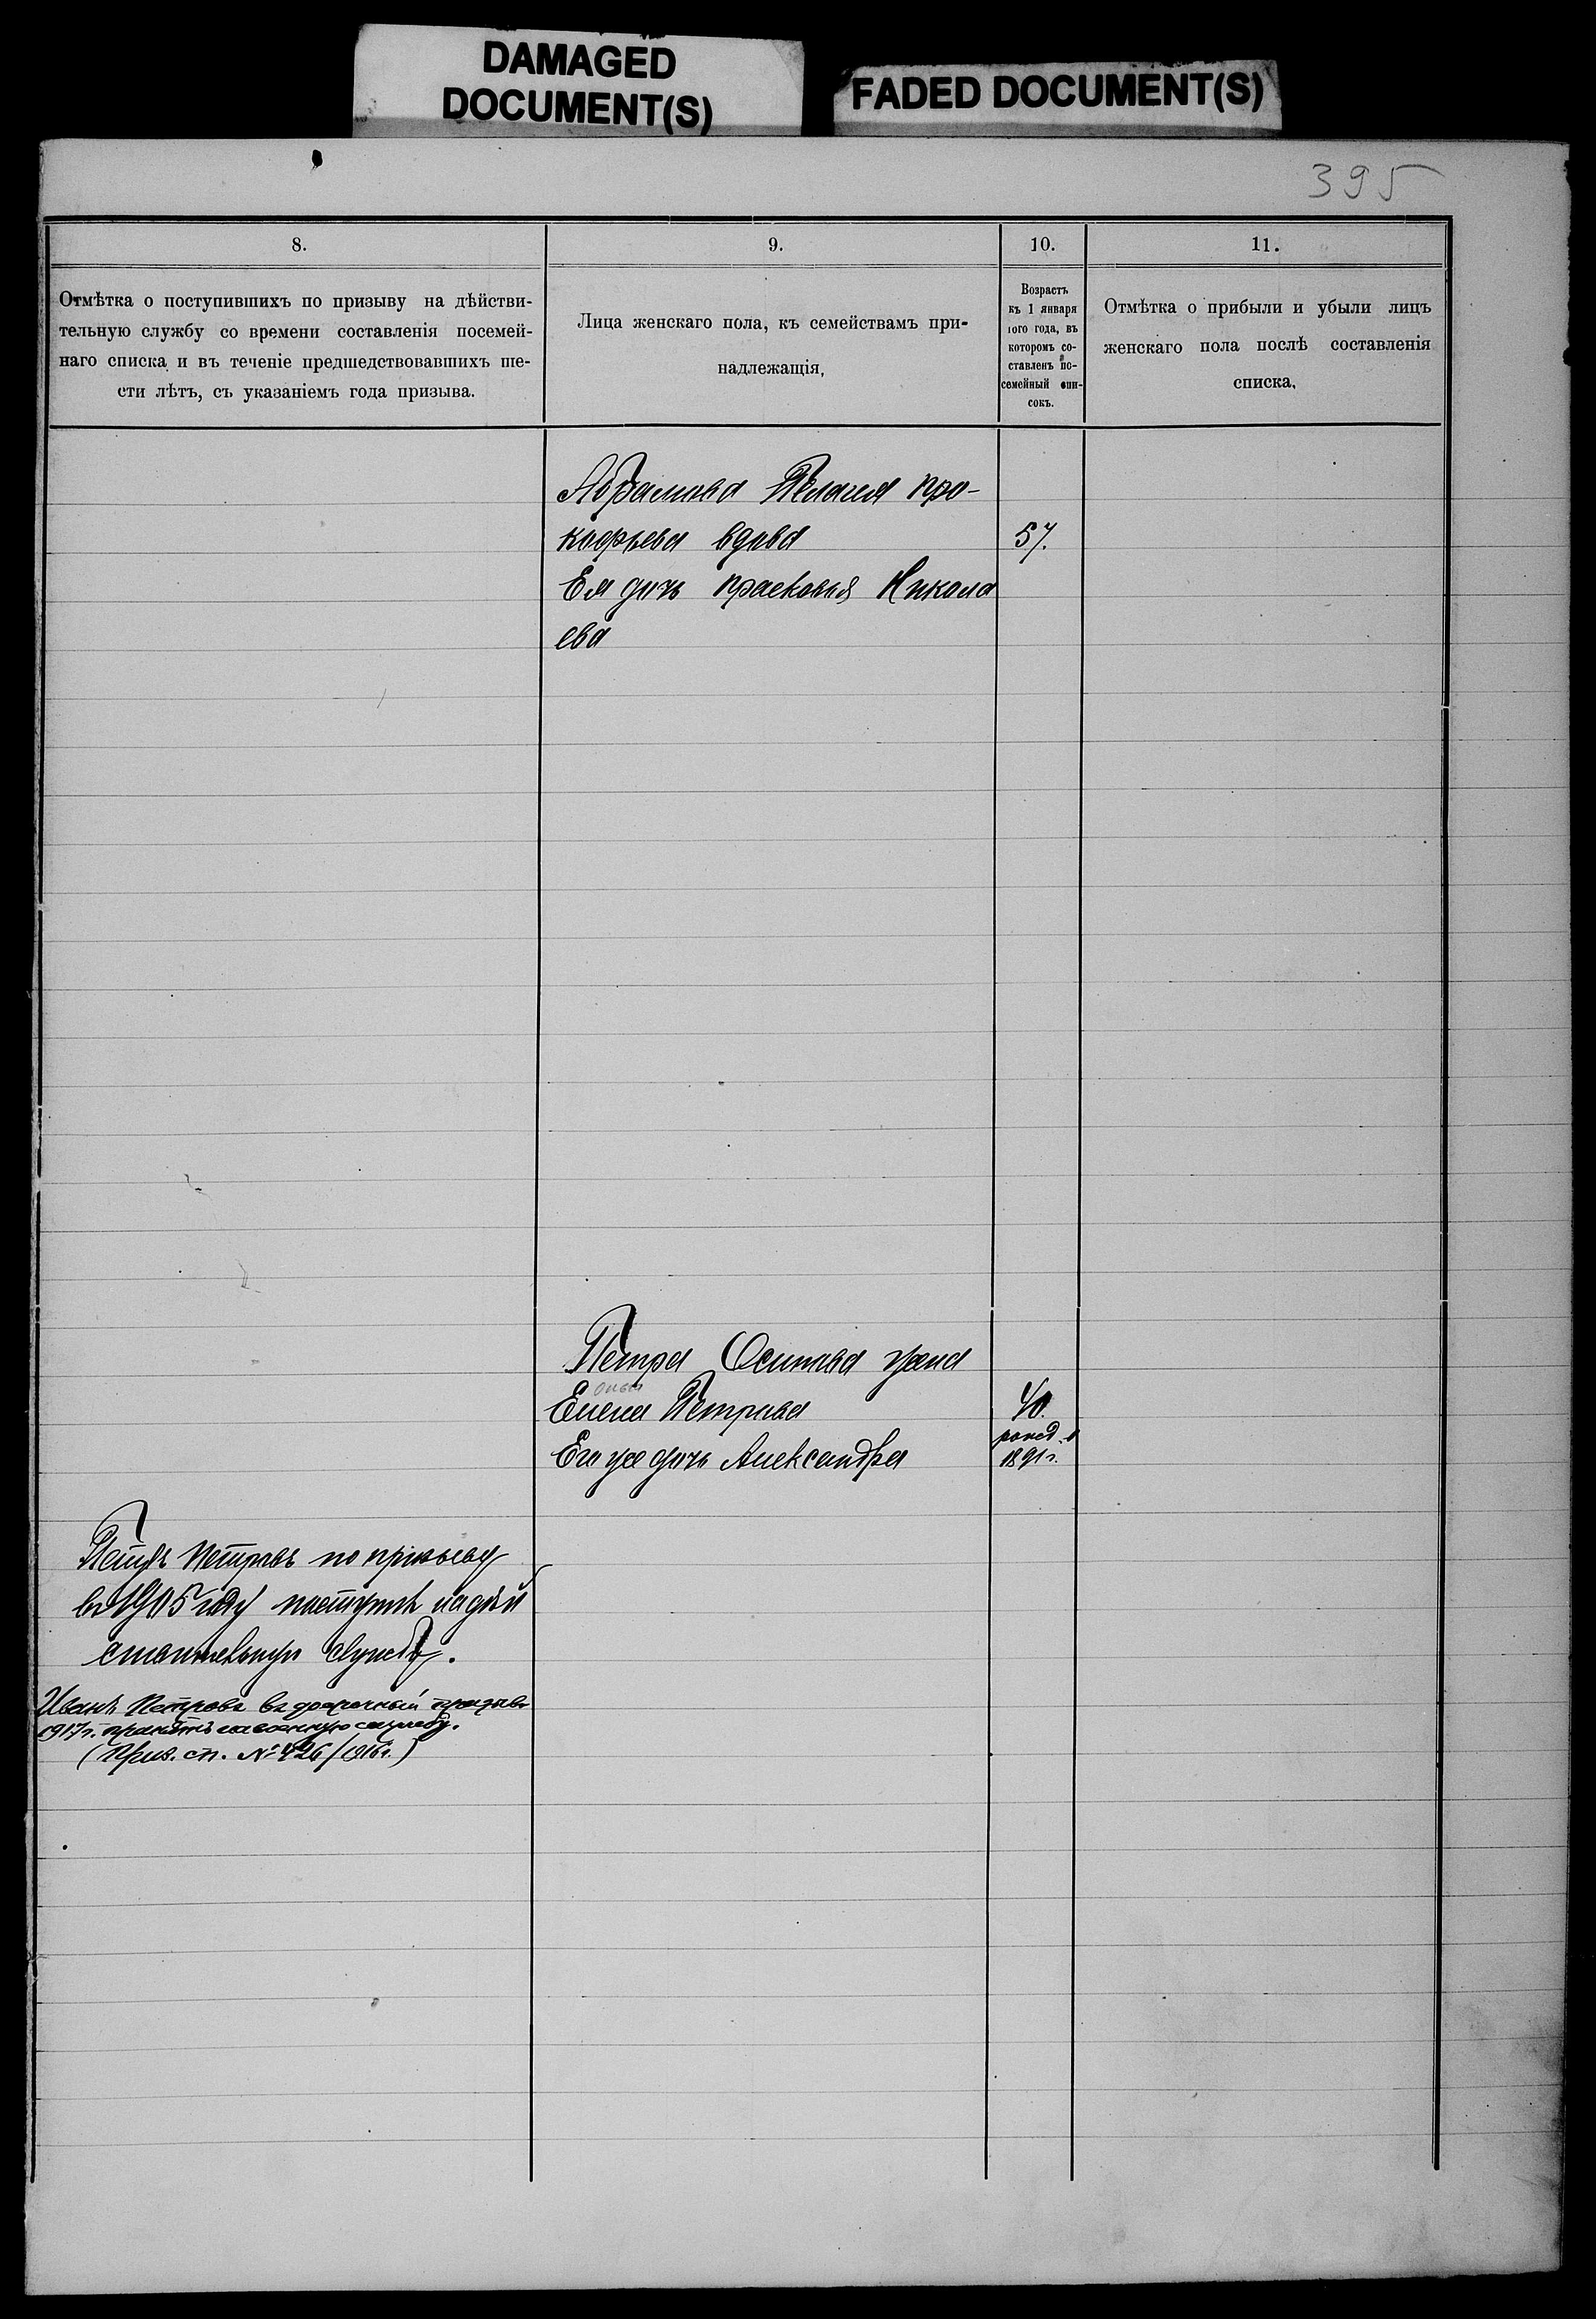 DAMAGED
DOCUMENT(S)
FADED DOCUMENT(S)
395
8.
9.
10.
11.
Отмѣтка о поступившихъ по призыву на дѣйстви-
тельную службу со времени составленія посемей-
наго списка и въ теченіе предшедствовавшихъ ше-
сти лѣтъ, съ указаніемъ года призыва.
Лица женскаго пола, къ семействамъ при-
надлежащія,
Возрастъ
къ 1 января
того года, въ
которомъ со-
ставленъ по-
семейный спи-
сокъ.
Отмѣтка о прибыли и убыли лицъ
женскаго пола послѣ составленія
списка,
Абрамова Пелагея про-
кофьева вдова 57.
Ея дочь прасковья Никола
ева
Петра Осипова жена
Елена Петрова 40.
рожд.
Его же дочь Александра 1891 г.
Петръ Петровъ по призыву
въ 1905 году поступилъ на дѣй
ствительную службу.
Иванъ Петровъ въ досрочный призывъ
1917 г. принятъ на военную службу.
(Приз. сп. № 426/1916 г.)